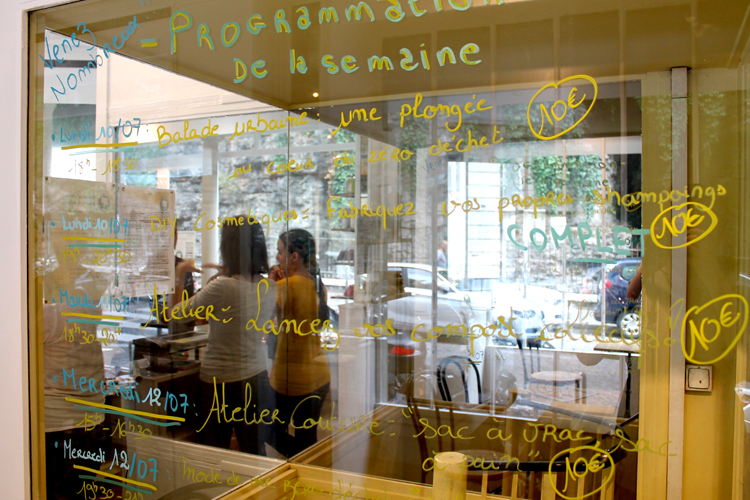 Venez
Nombreux
- Programmation
De la semaine
• Lundi 10/07 : Balade urbaine : une plongée
au coeur du zéro déchet
10€
18h - 19h30
• Lundi 10/07 DIY Cosmétiques = Fabriquez vos propres shampoings
COMPLET
10€
• Mardi 11/07 Atelier = Lancez vos compost collectifs!
18h30 - 20h
10€
• Mercredi 12/07 : Atelier Couture = "Sac à vrac, sac
à pain"
15h - 16h30
10€
• Mercredi 12/07